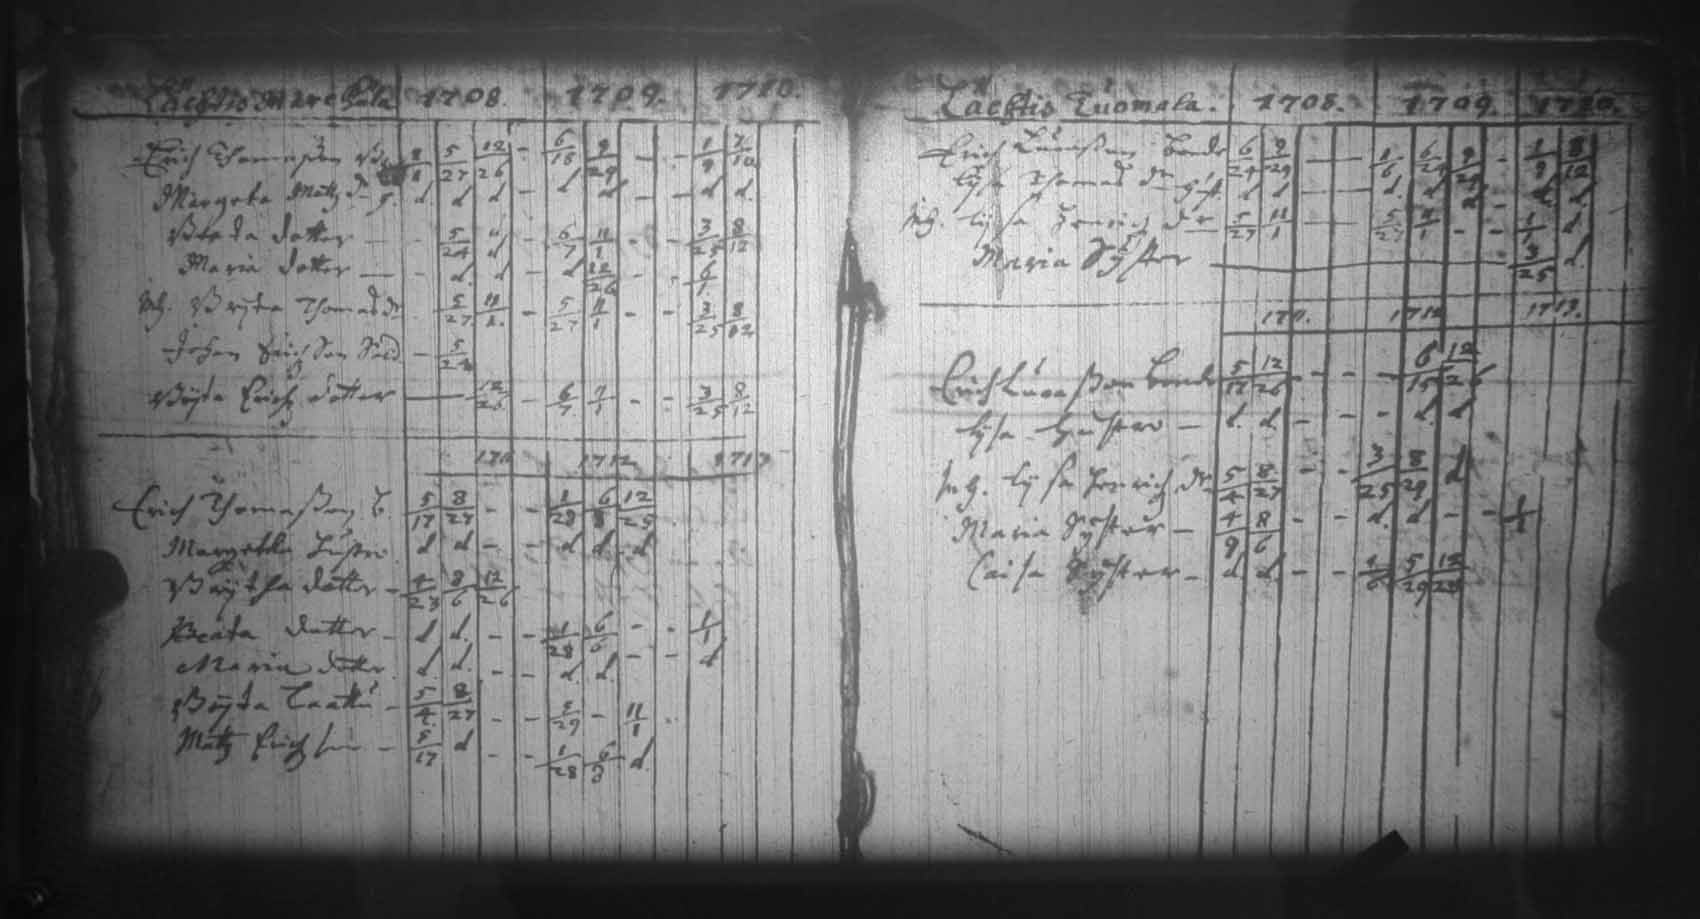 Laehtis Marckula 1708. 1709. 1710.
Erich Thomasson 5/27 12/26 - 6/18 9/29 - - 1/9 7/10
Margeta Matz d d d d - d d - - d d
Beata dotter - - 5/24 d - 6/7 11/1 - - 3/25 8/12
Maria dotter - d. d - d 12/26 - - 6/1
Inh. Bryta Thomas dr 5/27 11/1. - 5/27 11/1 - - 3/25 8/12
Johan Erichson Sold - 5/24
Bryta Erichz dotter 12/26 - 6/7 - - 3/25 8/12
1711 1712 1713
Erich Thomasson B. 5/17 8/27 - - 1/28 6/8 12/25
Margetha hustro d d - - d d d
Brytha dotter - 4/23 8/6 12/26
Beata dotter - d d. - - 1/28 6/6 - - 1/1
Maria dotter d d. - - d d. - - d
Bryta - 5/4 8/27 - - 5/29 - 11/1
Matz Erichson - 5/17 d - - 1/28 6/8 d.
Laehtis Tuomala. 1708. 1709. 1710.
Erich Lucasson Bonde 6/24 9/29 1/6 6/24 9/29 - 1/9 8/12
Lysa Thomas dr hust. d d d. d. d - d. d.
Inh. Lysa Henrich dr 5/27 11/1 5/27 11/1 - - 1/1 d.
Maria Syster 3/25 d.
1711. 1712 1713.
Erich Lucasson Bonde 5/17 12/26 - - - - 6/15 12/26
Lysa hustro - d. d. - - - d. d
Inh. Lysa Henrich dr 5/4 8/27 - - 3/25 8/29 d
Maria Syster - 4/9 8/6 - - d. d - - 1/1
Caisa Syster - d d. - - 1/6 5/29 12/28